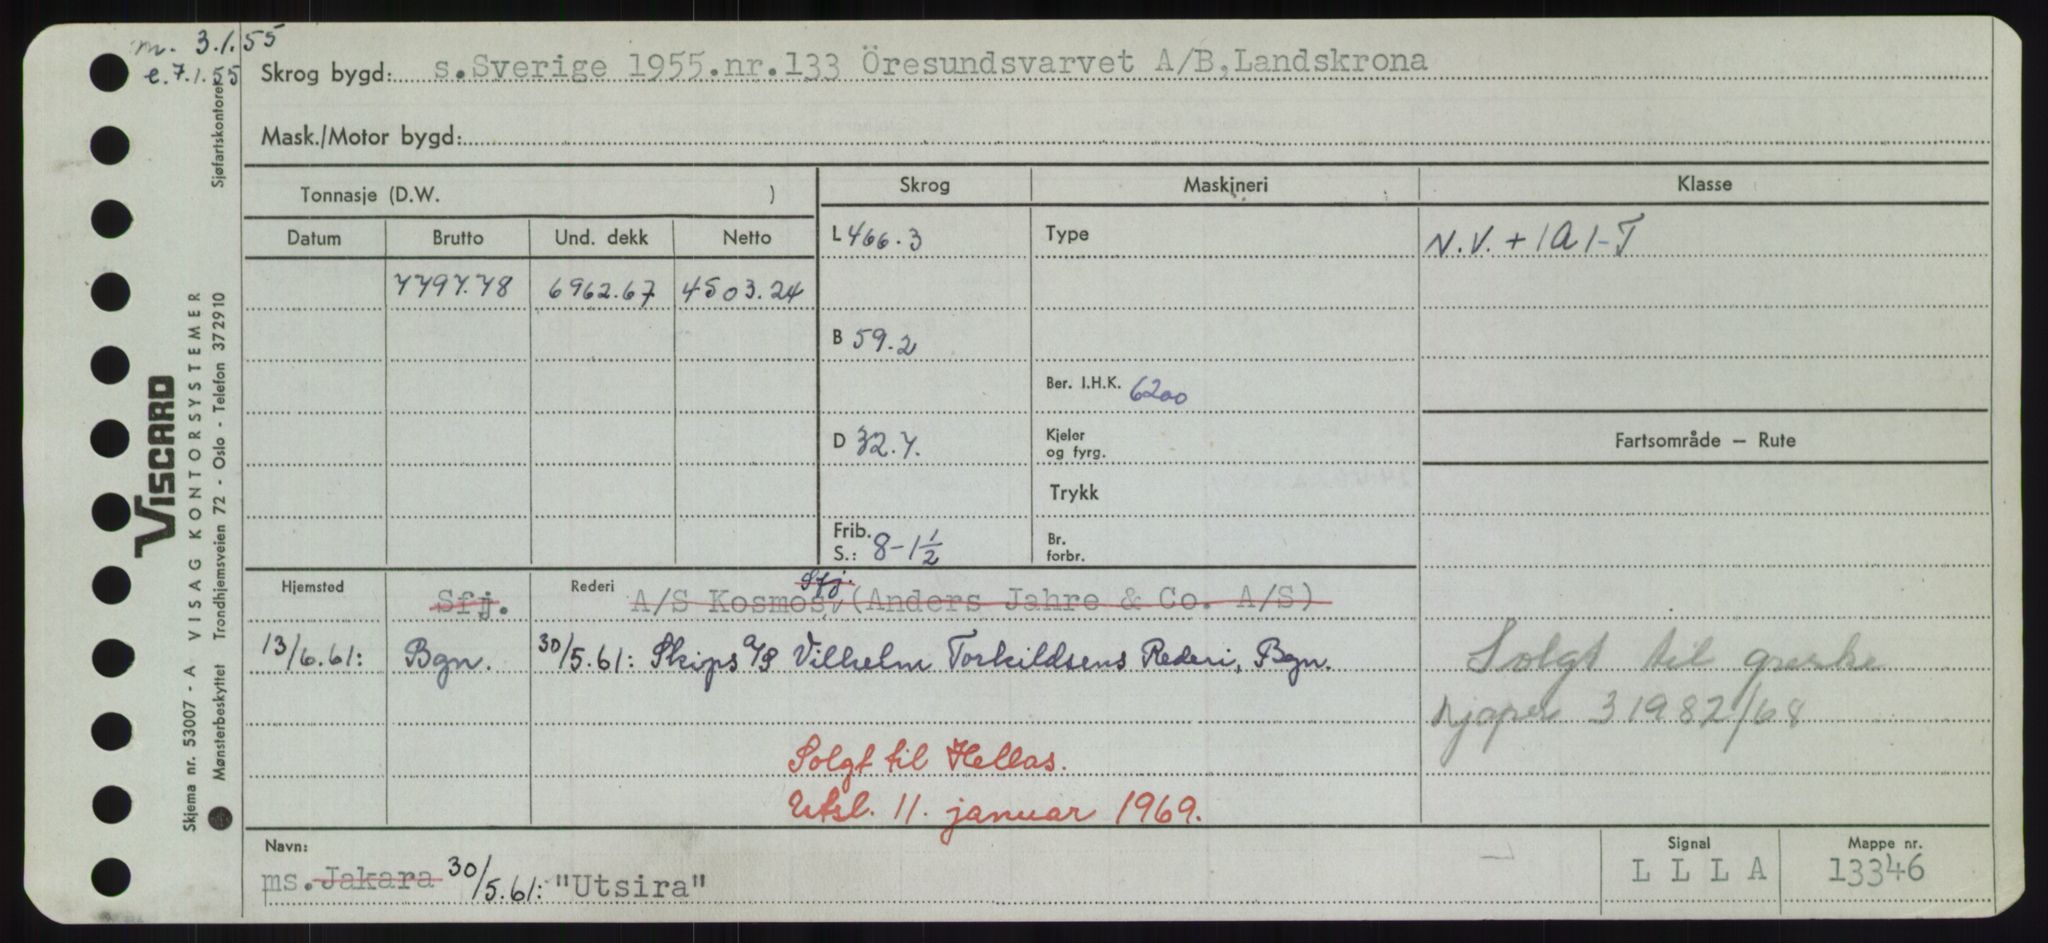 m. 3.1.55
e. 7.1.55
Skrog bygd: s.Sverige 1955.nr.133 Öresundsvarvet A/B,Landskrona
Mask./Motor bygd:
Tonnasje (D.W. )
Skrog
Maskineri
Klasse
Datum
Brutto
Und. dekk
Netto
L 466.3
Type
N.V. + 1A1-T
7797.78
6962.67
4503.24
B 59.2
Ber. I.H.K. 6200
D 32.7.
Kjeler
og fyrg.
Fartsområde – Rute
Trykk
Frib.
S.: 8-1½
Br.
forbr.
Hjemsted
Sfj.
Rederi
Sfj.
A/S Kosmos, (Anders Jahre & Co. A/S)
13/6.61:
Bgn.
30/5.61: Skips A/S Vilhelm Torkildsens Rederi, Bgn.
Solgt til greske
kjøpere 31982/68
Solgt til Hellas.
Utsl. 11. januar 1969.
Navn:
ms. Jakara 30/5.61: "Utsira"
Signal
LLLA
Mappe nr.
13346
VISCARD
Skjema nr. 53007 - A VISAG KONTORSYSTEMER
Mønsterbeskyttet Trondhjemsveien 72 - Oslo - Telefon 372910
Sjøfartskontoret